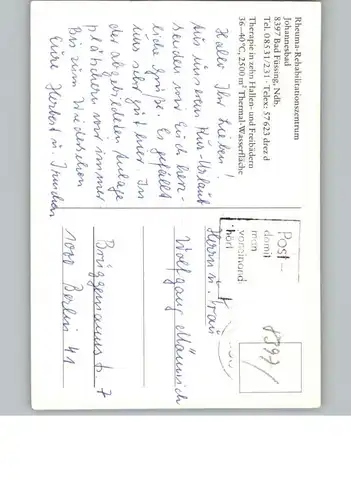 Rheuma-Rehabilitationszentrum
Johannesbad
8397 Bad Füssing, Ndb.
Tel. 08531/231 · Telex: 57623 drez d
Therapie in zehn Hallen- und Freibädern
36–40°C, 2500 m² Thermal-Wasserfläche
Hallo Ihr Lieben!
Aus unserem Kur-Urlaub
senden wir Euch herz-
liche Grüße. Es gefällt
uns sehr gut hier. In
der abgebildeten Anlage
plätschern wir immer.
Bis zum Wiedersehen
Eure Herbert u.
Post –
damit
man
voneinand
hört
8397/
Herrn u. Frau
Wolfgang Männich
Brüggemannstr. 7
1000 Berlin 41